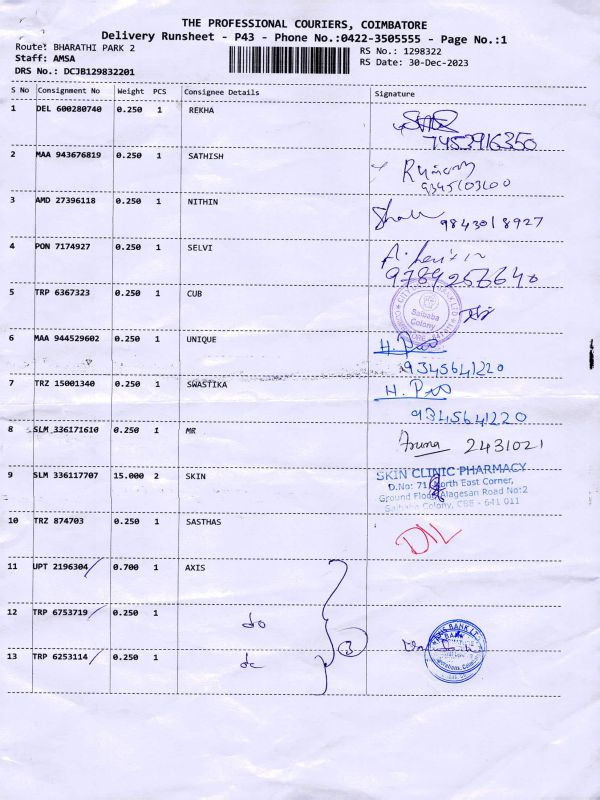 THE PROFESSIONAL COURIERS, COIMBATORE
Delivery Runsheet - P43 - Phone No.:0422-3505555 - Page No.:1
Route: BHARATHI PARK 2
RS No.: 1298322
Staff: AMSA
RS Date: 30-Dec-2023
DRS No.: DCJB129832201
S No Consignment No Weight PCS Consignee Details Signature
1 DEL 600280740 0.250 1 REKHA
7453916350
2 MAA 943676819 0.250 1 SATHISH
9345103600
3 AMD 27396118 0.250 1 NITHIN
9843018927
4 PON 7174927 0.250 1 SELVI
9789256640
5 TRP 6367323 0.250 1 CUB
Saibaba
Colony
6 MAA 944529602 0.250 1 UNIQUE
9345641220
7 TRZ 15001340 0.250 1 SWASTIKA
9345641220
8 SLM 336171610 0.250 1 MR
2431021
9 SLM 336117707 15.000 2 SKIN
SKIN CLINIC PHARMACY
D.No: 71, North East Corner,
Ground Floor, Alagesan Road No:2
Saibaba Colony, CBE - 641 011
10 TRZ 874703 0.250 1 SASTHAS
D/L
11 UPT 2196304 0.700 1 AXIS
12 TRP 6753719 0.250 1 do
3
AXIS BANK LTD
13 TRP 6253114 0.250 1 do